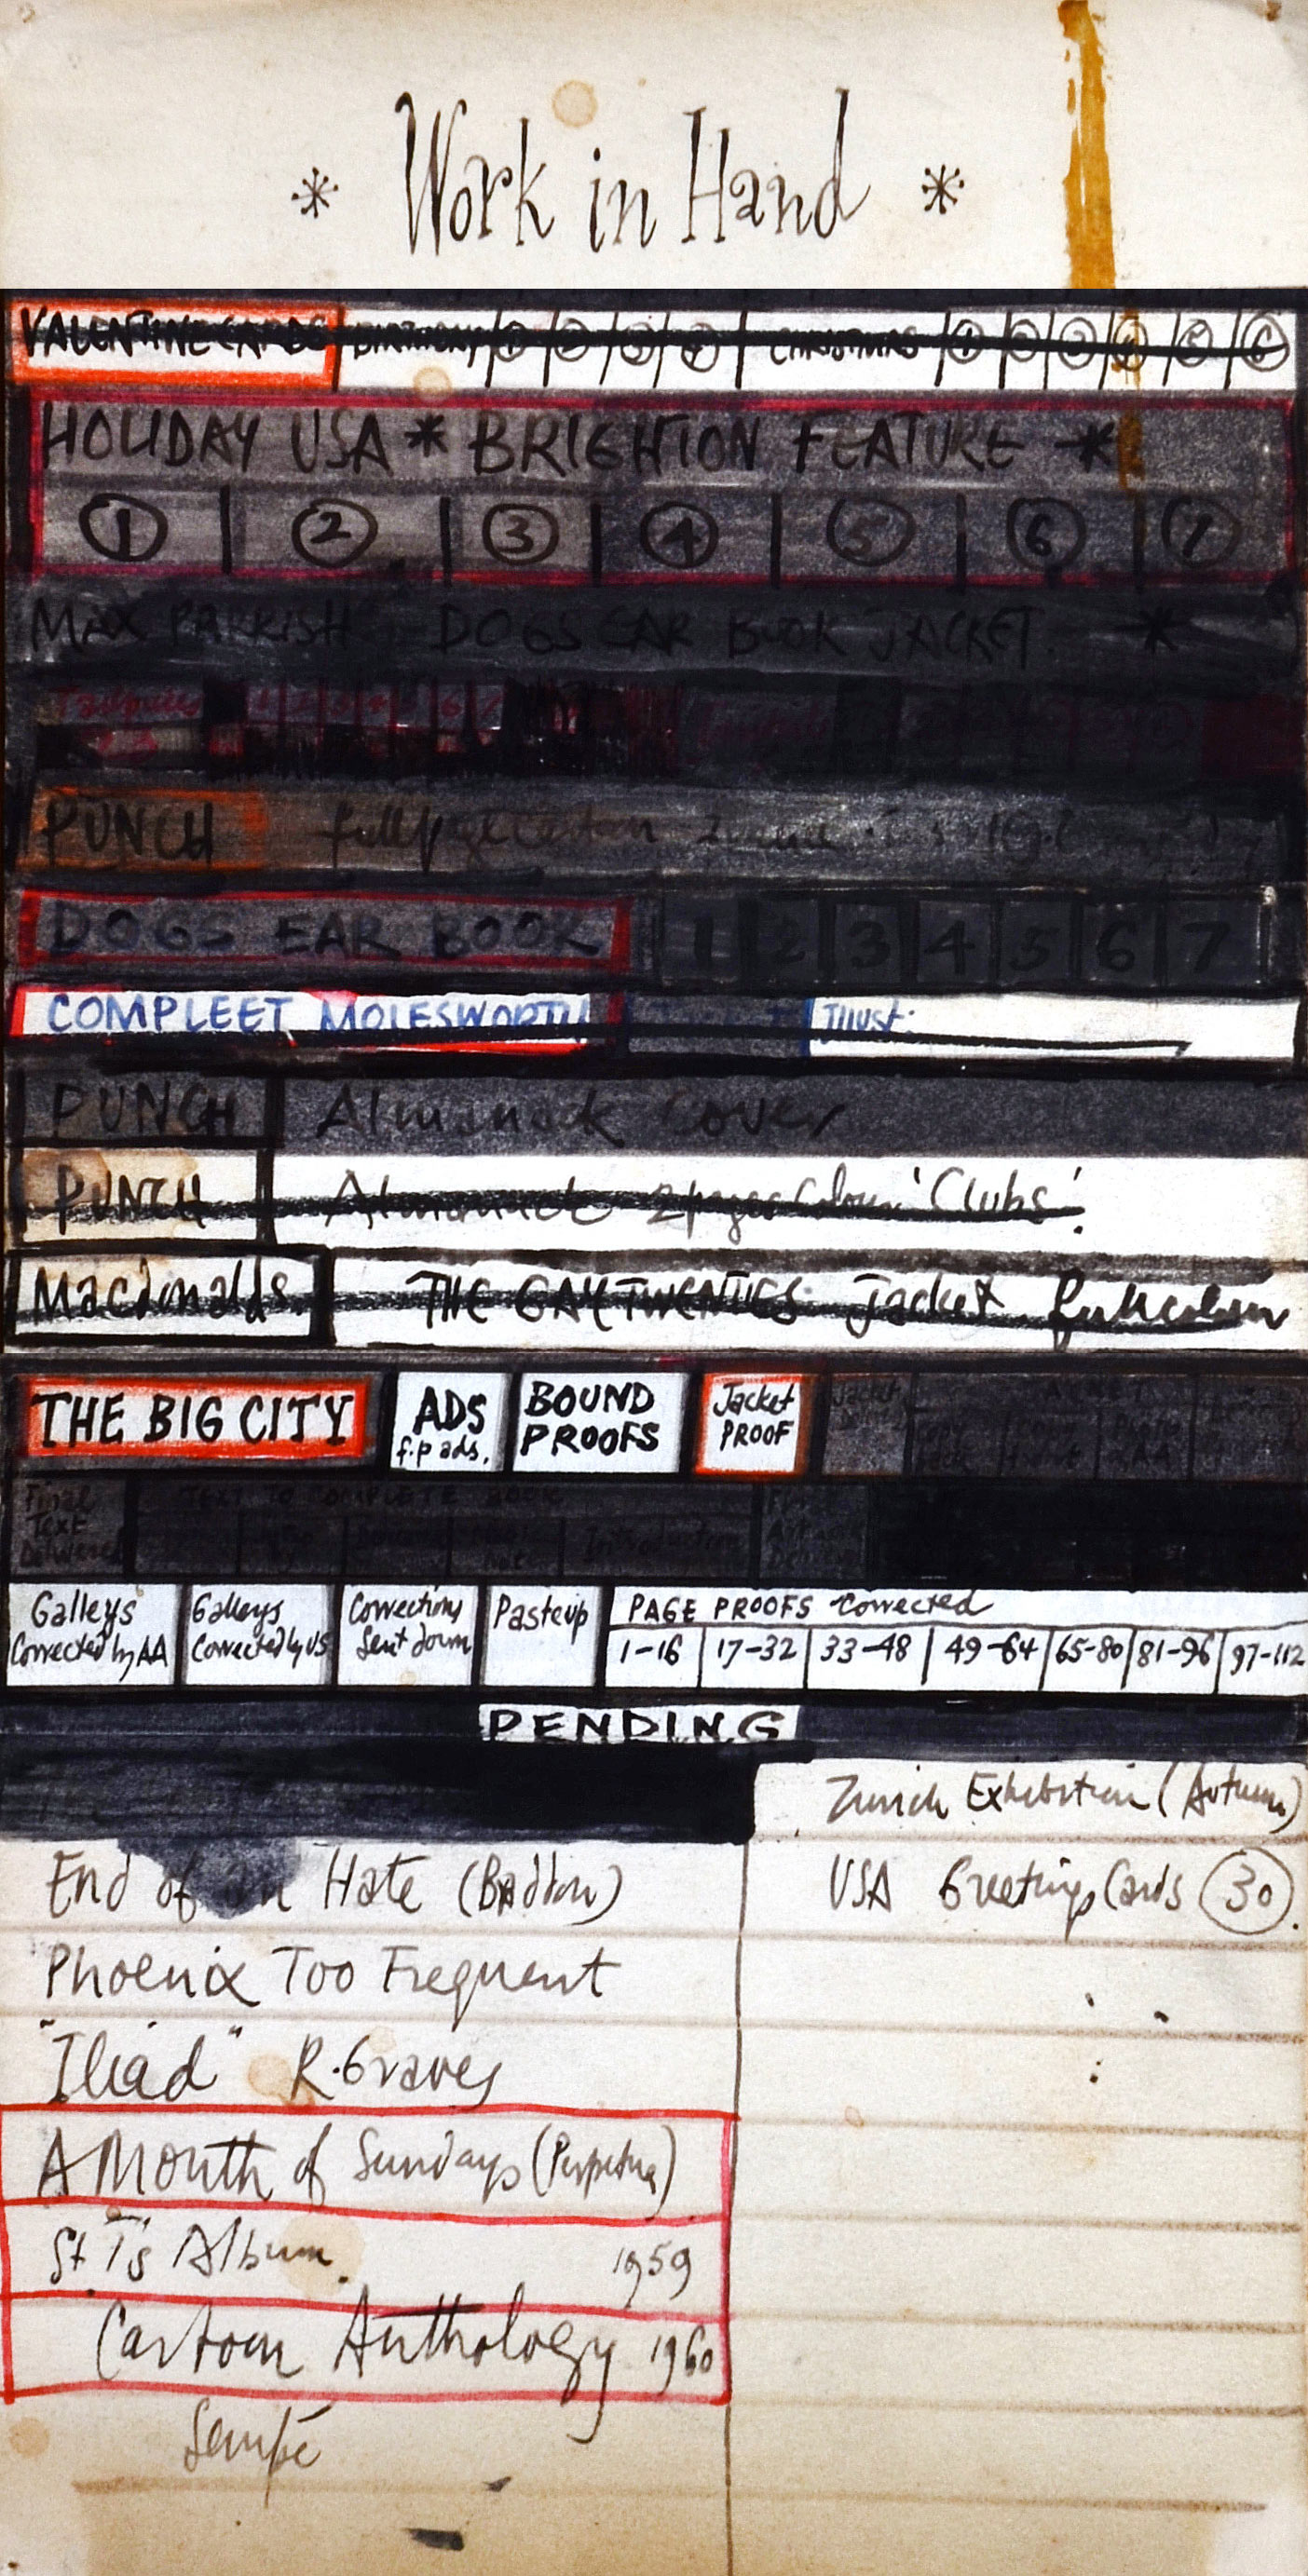 * Work in Hand *
VALENTINE CARDS BIRTHDAY 1 2 3 4 CHRISTMAS 1 2 3 4 5 6
HOLIDAY USA * BRIGHTON FEATURE *
1 2 3 4 5 6 7
MAX PARRISH DOGS EAR BOOK JACKET. *
PUNCH full page
DOGS EAR BOOK 1 2 3 4 5 6 7
COMPLEET MOLESWORTH Illust:
PUNCH Almanack Cover
PUNCH Almanack 2 pages Colour 'Clubs'.
Macdonalds. THE GAY TWENTIES Jacket full colour
THE BIG CITY ADS f.p ads. BOUND PROOFS Jacket PROOF Jacket
Final Text Delivered TEXT TO COMPLETE BOOK Introduction
Galleys Corrected by AA Galleys Corrected by US Corrections Sent down Pasteup PAGE PROOFS Corrected
1-16 17-32 33-48 49-64 65-80 81-96 97-112
PENDING
Zurich Exhibition (Autumn)
End of an Hate (Baddow) USA Greetings Cards 30.
Phoenix Too Frequent
"Iliad" R. Graves
A Month of Sundays (Perpetua)
St. T's Album. 1959
Cartoon Anthology 1960
Sempé